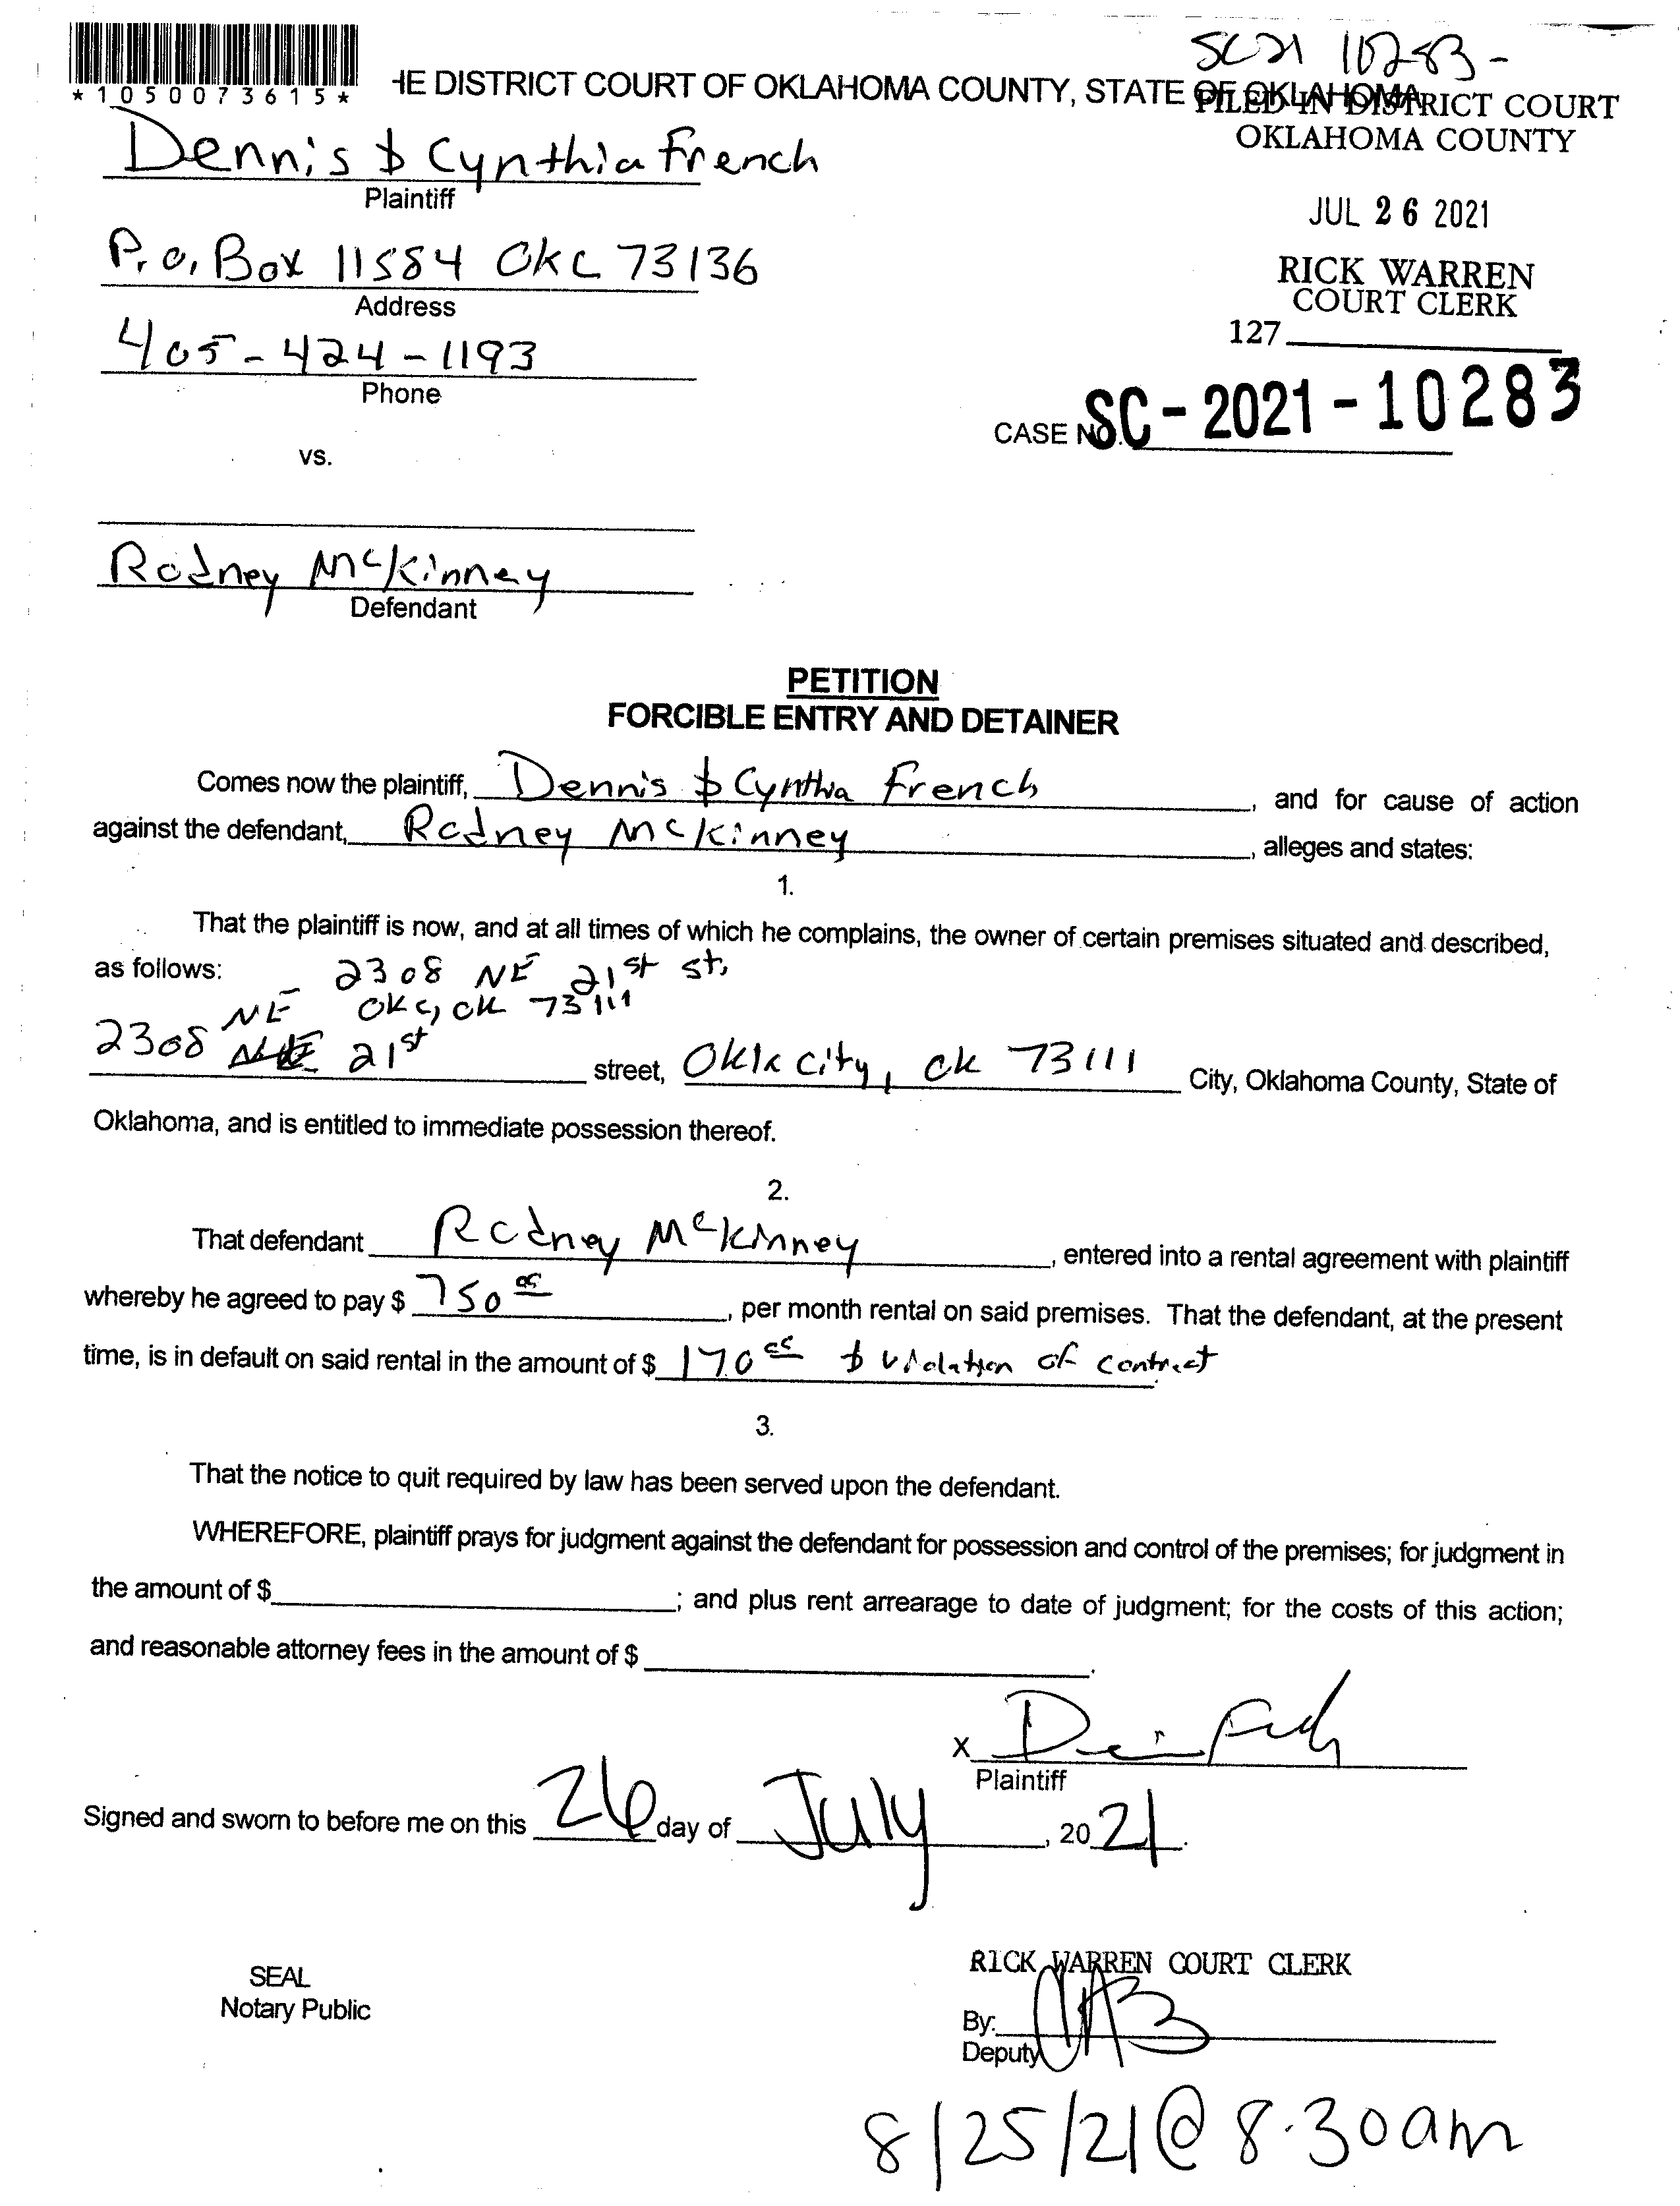 SC21 10283-
*1050073615*
HE DISTRICT COURT OF OKLAHOMA COUNTY, STATE OF OKLAHOMA
FILED IN DISTRICT COURT
OKLAHOMA COUNTY
Dennis & Cynthia French
Plaintiff
JUL 26 2021
P.O. Box 11584 OKC 73136
Address
RICK WARREN
COURT CLERK
127
405-424-1193
Phone
CASE NO. SC-2021-10283
vs.
Rodney McKinney
Defendant
PETITION
FORCIBLE ENTRY AND DETAINER
Comes now the plaintiff, Dennis & Cynthia French, and for cause of action
against the defendant, Rodney McKinney, alleges and states:
1.
That the plaintiff is now, and at all times of which he complains, the owner of certain premises situated and described,
as follows: 2308 NE 21st St,
NE OKC, OK 73111
2308 21st street, Okla City, OK 73111 City, Oklahoma County, State of
Oklahoma, and is entitled to immediate possession thereof.
2.
That defendant Rodney McKinney, entered into a rental agreement with plaintiff
whereby he agreed to pay $ 750 00, per month rental on said premises. That the defendant, at the present
time, is in default on said rental in the amount of $ 170 00 & violation of contract
3.
That the notice to quit required by law has been served upon the defendant.
WHEREFORE, plaintiff prays for judgment against the defendant for possession and control of the premises; for judgment in
the amount of $; and plus rent arrearage to date of judgment; for the costs of this action;
and reasonable attorney fees in the amount of $.
X
Plaintiff
Signed and sworn to before me on this 26 day of July, 2021.
RICK WARREN COURT CLERK
SEAL
Notary Public
By:
Deputy
8/25/21@ 8:30am